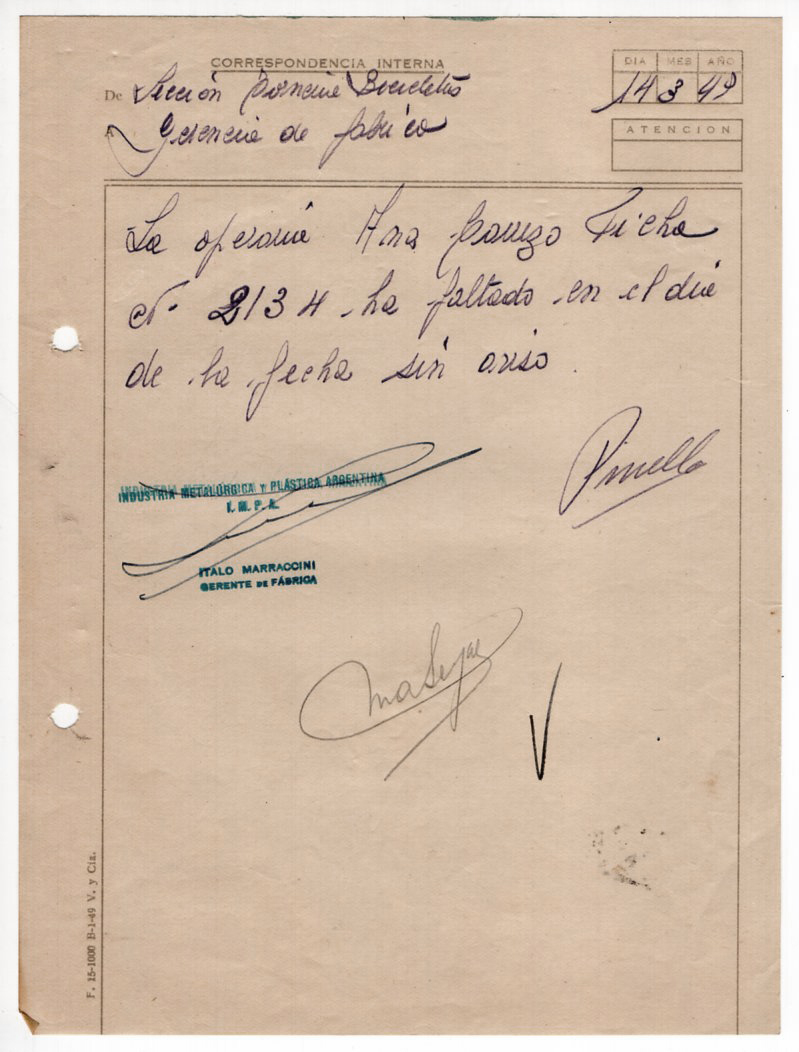 CORRESPONDENCIA INTERNA
DIA MES AÑO
De Sección Bicicletas
14 3 49
A Gerencia de fabrica
ATENCION
La operaria Ana Ficha
Nº 2134 ha faltado en el dia
de la fecha sin aviso
INDUSTRIA METALÚRGICA Y PLÁSTICA ARGENTINA
I. M. P. A.
ITALO MARRACCINI
GERENTE DE FÁBRICA
F. 15-1000 B-1-49 V. y Cía.